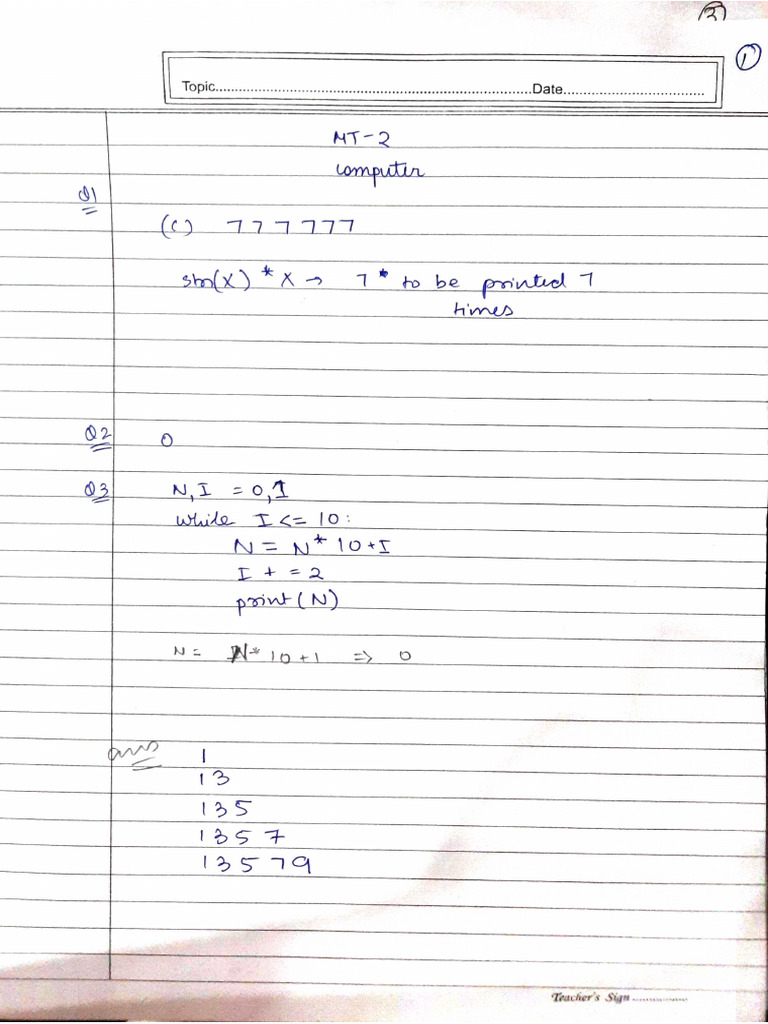 3
1
Topic..........Date..........
MT-2
computer
Q1
(C) 777777
str(X) * X → 7 * to be printed 7
times
Q2 0
Q3 N,I = 0,1
while I <= 10:
N = N * 10 + I
I + = 2
print (N)
N = N* 10 + 1 => 0
ans 1
13
135
1357
13579
Teacher's Sign ..........